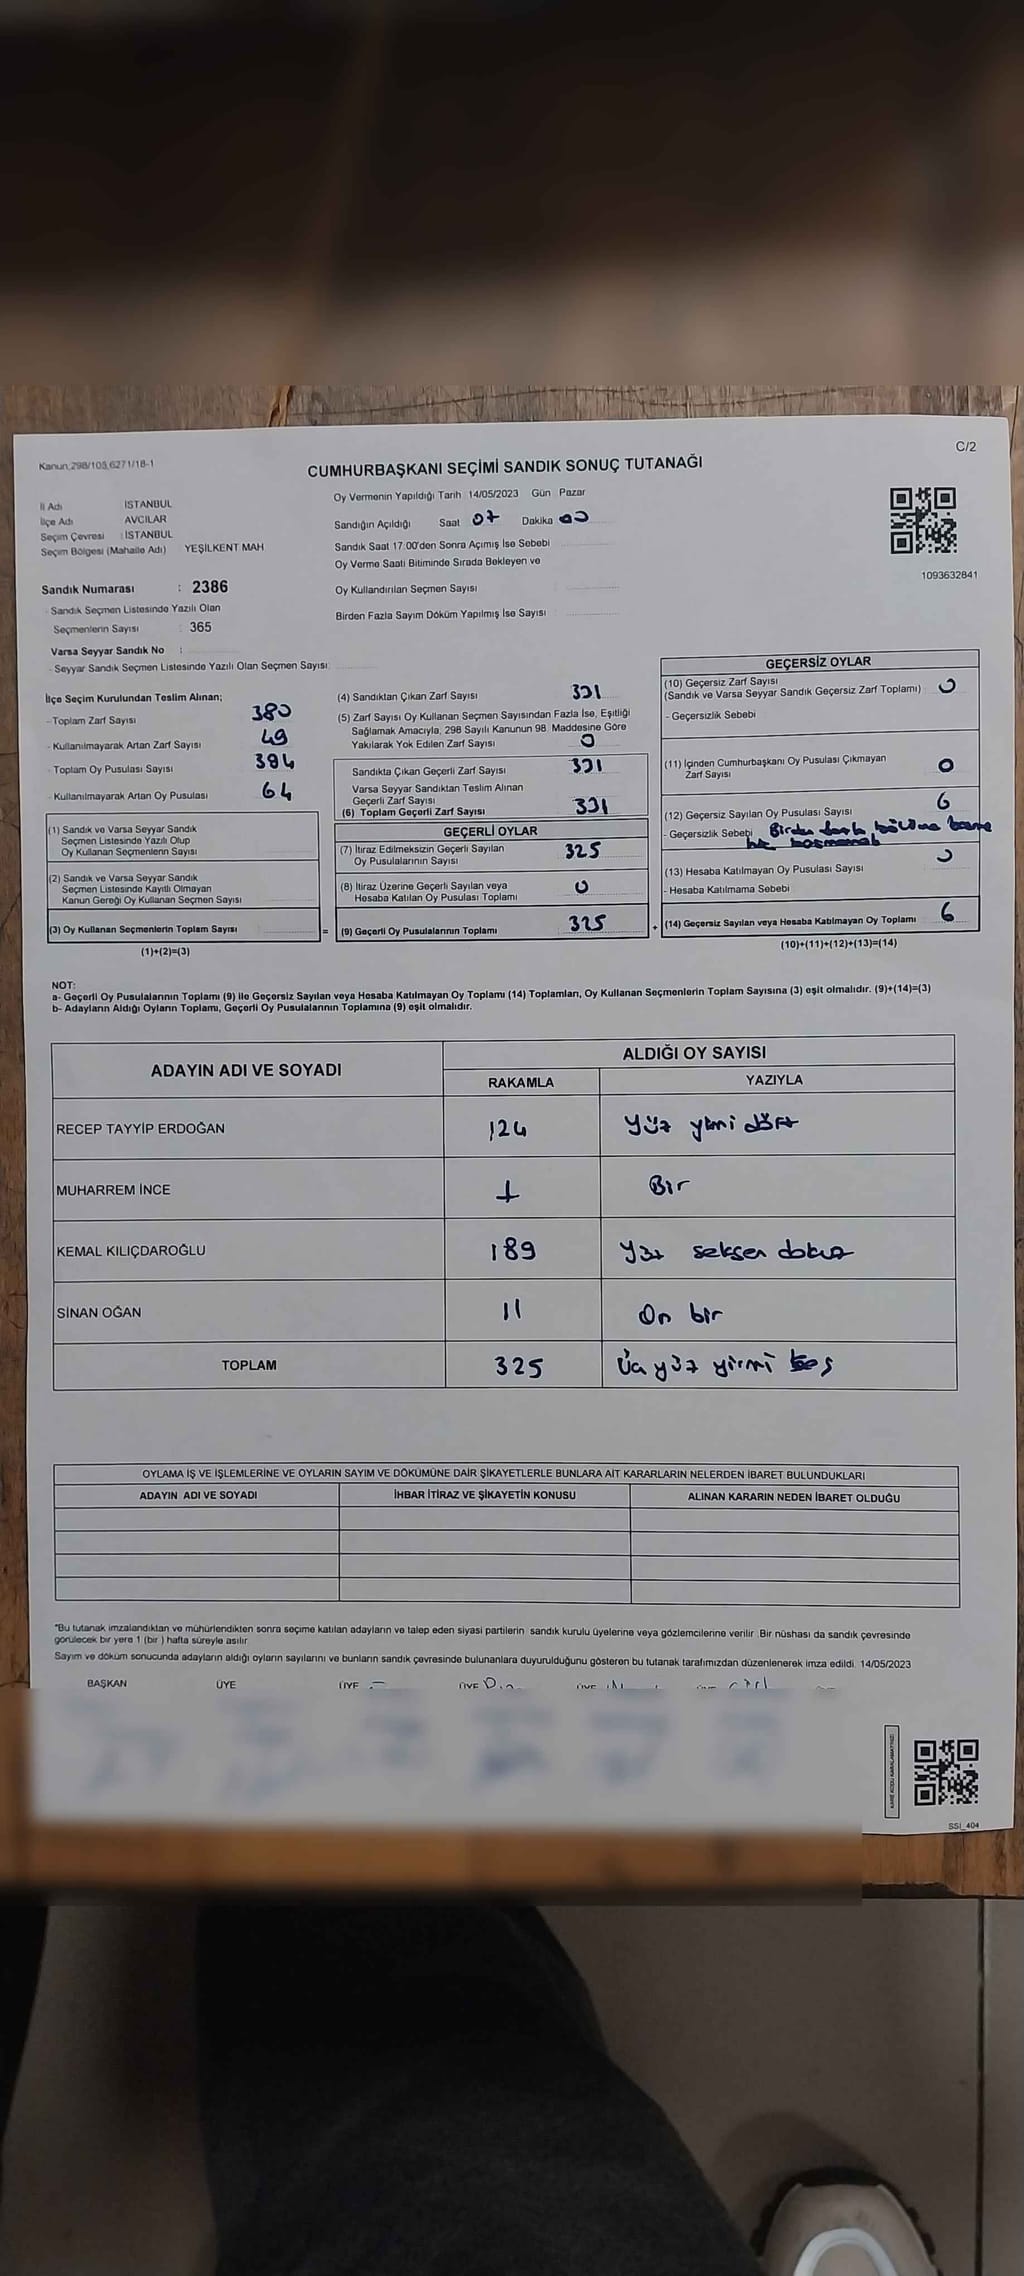 C/2
Kanun;298/105,6271/18-1
CUMHURBAŞKANI SEÇİMİ SANDIK SONUÇ TUTANAĞI
İl Adı İSTANBUL
İlçe Adı AVCILAR
Seçim Çevresi : İSTANBUL
Seçim Bölgesi (Mahalle Adı) YEŞİLKENT MAH
Sandık Numarası : 2386
- Sandık Seçmen Listesinde Yazılı Olan
Seçmenlerin Sayısı : 365
Varsa Seyyar Sandık No :
- Seyyar Sandık Seçmen Listesinde Yazılı Olan Seçmen Sayısı:
Oy Vermenin Yapıldığı Tarih 14/05/2023 Gün Pazar
Sandığın Açıldığı Saat 07 Dakika 00
Sandık Saat 17:00'den Sonra Açımış İse Sebebi
Oy Verme Saati Bitiminde Sırada Bekleyen ve
Oy Kullandırılan Seçmen Sayısı
Birden Fazla Sayım Döküm Yapılmış İse Sayısı
1093632841
İlçe Seçim Kurulundan Teslim Alınan;
- Toplam Zarf Sayısı 380
- Kullanılmayarak Artan Zarf Sayısı 49
- Toplam Oy Pusulası Sayısı 394
- Kullanılmayarak Artan Oy Pusulası 64
(1) Sandık ve Varsa Seyyar Sandık
Seçmen Listesinde Yazılı Olup
Oy Kullanan Seçmenlerin Sayısı
(2) Sandık ve Varsa Seyyar Sandık
Seçmen Listesinde Kayıtlı Olmayan
Kanun Gereği Oy Kullanan Seçmen Sayısı
(3) Oy Kullanan Seçmenlerin Toplam Sayısı =
(1)+(2)=(3)
(4) Sandıktan Çıkan Zarf Sayısı 331
(5) Zarf Sayısı Oy Kullanan Seçmen Sayısından Fazla İse, Eşitliği
Sağlamak Amacıyla, 298 Sayılı Kanunun 98. Maddesine Göre
Yakılarak Yok Edilen Zarf Sayısı 0
Sandıkta Çıkan Geçerli Zarf Sayısı 331
Varsa Seyyar Sandıktan Teslim Alınan
Geçerli Zarf Sayısı
(6) Toplam Geçerli Zarf Sayısı 331
GEÇERLİ OYLAR
(7) İtiraz Edilmeksizin Geçerli Sayılan
Oy Pusulalarının Sayısı 325
(8) İtiraz Üzerine Geçerli Sayılan veya
Hesaba Katılan Oy Pusulası Toplamı 0
(9) Geçerli Oy Pusulalarının Toplamı 325 +
GEÇERSİZ OYLAR
(10) Geçersiz Zarf Sayısı
(Sandık ve Varsa Seyyar Sandık Geçersiz Zarf Toplamı) 0
- Geçersizlik Sebebi
(11) İçinden Cumhurbaşkanı Oy Pusulası Çıkmayan
Zarf Sayısı 0
(12) Geçersiz Sayılan Oy Pusulası Sayısı 6
- Geçersizlik Sebebi Birden fazla bölüme basma
(13) Hesaba Katılmayan Oy Pusulası Sayısı 0
- Hesaba Katılmama Sebebi
(14) Geçersiz Sayılan veya Hesaba Katılmayan Oy Toplamı 6
(10)+(11)+(12)+(13)=(14)
NOT:
a- Geçerli Oy Pusulalarının Toplamı (9) ile Geçersiz Sayılan veya Hesaba Katılmayan Oy Toplamı (14) Toplamları, Oy Kullanan Seçmenlerin Toplam Sayısına (3) eşit olmalıdır. (9)+(14)=(3)
b- Adayların Aldığı Oyların Toplamı, Geçerli Oy Pusulalarının Toplamına (9) eşit olmalıdır.
ADAYIN ADI VE SOYADI ALDIĞI OY SAYISI
RAKAMLA YAZIYLA
RECEP TAYYİP ERDOĞAN 124 Yüz yirmi dört
MUHARREM İNCE 1 Bir
KEMAL KILIÇDAROĞLU 189 Yüz seksen dokuz
SİNAN OĞAN 11 On bir
TOPLAM 325 Üç yüz yirmi beş
OYLAMA İŞ VE İŞLEMLERİNE VE OYLARIN SAYIM VE DÖKÜMÜNE DAİR ŞİKAYETLERLE BUNLARA AİT KARARLARIN NELERDEN İBARET BULUNDUKLARI
ADAYIN ADI VE SOYADI İHBAR İTİRAZ VE ŞİKAYETİN KONUSU ALINAN KARARIN NEDEN İBARET OLDUĞU
*Bu tutanak imzalandıktan ve mühürlendikten sonra seçime katılan adayların ve talep eden siyasi partilerin sandık kurulu üyelerine veya gözlemcilerine verilir. Bir nüshası da sandık çevresinde
görülecek bir yere 1 (bir ) hafta süreyle asılır.
Sayım ve döküm sonucunda adayların aldığı oyların sayılarını ve bunların sandık çevresinde bulunanlara duyurulduğunu gösteren bu tutanak tarafımızdan düzenlenerek imza edildi. 14/05/2023
BAŞKAN ÜYE ÜYE ÜYE ÜYE ÜYE
KARE KODU KARALAMAYINIZ!
SSİ_404